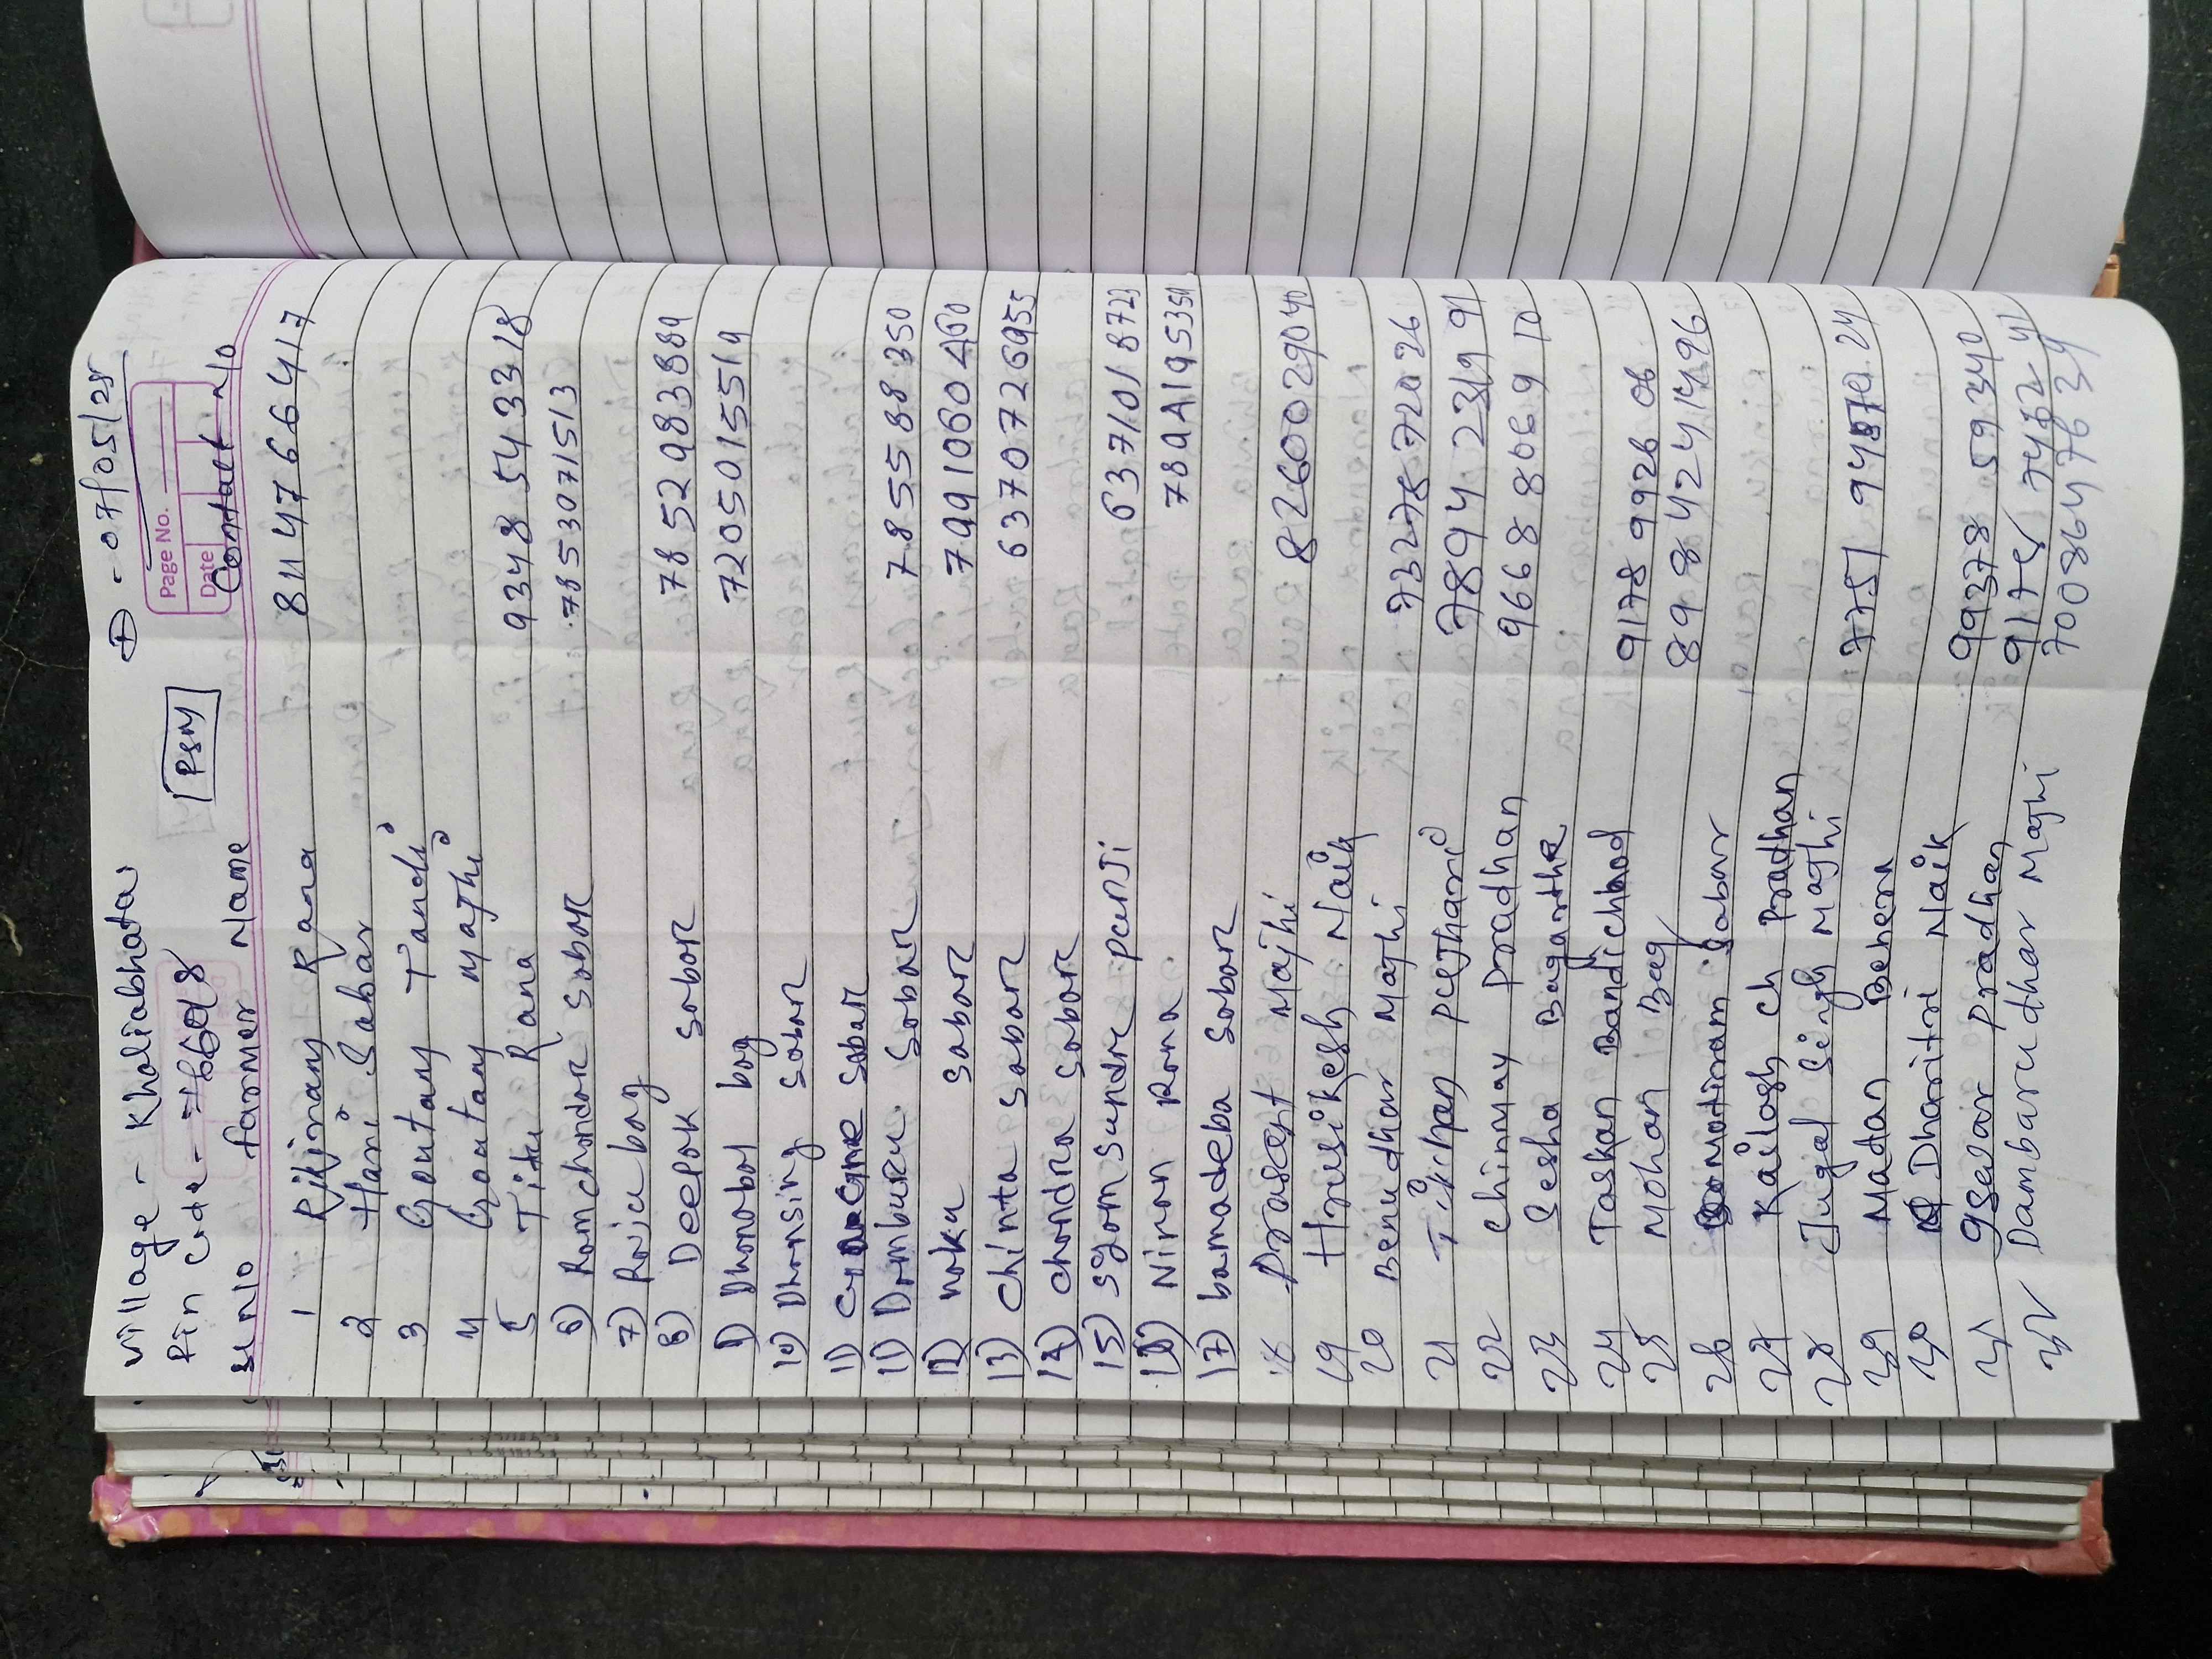 Village - Khaliabhata D - 07/05/25
Pin Code - 766018 PSM
Page No.
Date
Sl n/o farmer Name Contact n/o
1 Rikimany Rana 8114766417
2 Hari Sabar
3 Goutam Tandi
4 Goutam Majhi
5 Titu Rana 9348543318
6) Ramchandar Sabar 7853071513
7) Raju bag
8) Deepak Sabar 7852983889
9) Dhanabal bag 7205015519
10) Dhansing Sabar
11) Sabar
11) Damburu Sabar 7855838350
12) noku Sabar 7991060460
13) Chinta Sabar 6370726955
14) Chandra Sabar
15) Syam Sundar punji 6371018723
16) Niran Rana 7894195350
17) bamadeba Sabar
18 Prasant Majhi 8260029040
19 Hrusikesh Naik
20 Benudhar Majhi
21 Tikchan pujhari 7894423191
22 Chinmay Pradhan 9668806910
23 Sesha Bagarthi
24 Taskan Bandichhod 9178992606
25 Mohan Bag 8984241496
26 Motiram Sabar
27 Kailash ch Pradhan
28 Jugal Singh Majhi
29 Madan Behera
30 Dharitri Naik
31 Pradhan 9937859340
32 Dambarudhar Majhi 7008647639